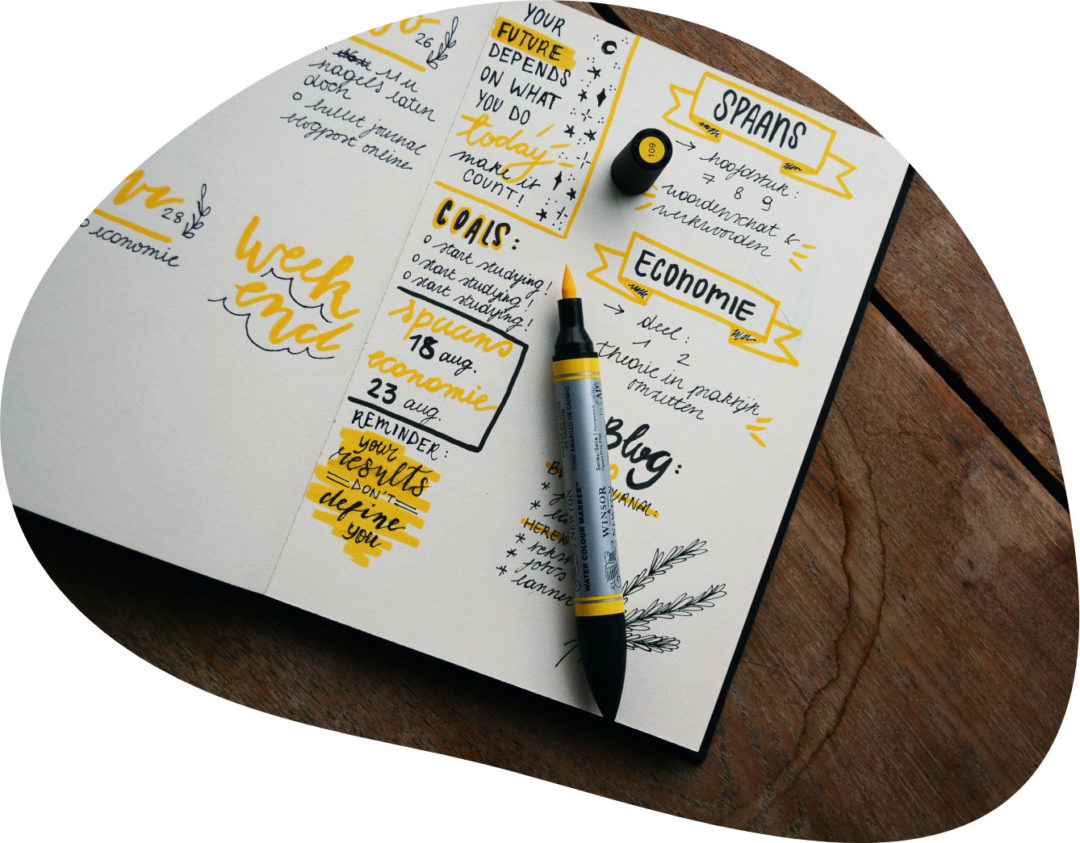 26
11 u
nagels laten
doen
o bullet journal
blogpost online
28
o economie
Week
end
YOUR
FUTURE
DEPENDS
ON WHAT
YOU DO
today
make it
COUNT!
GOALS:
o start studying!
o start studying!
o start studying!
spaans
18 aug.
economie
23 aug.
REMINDER:
your
results
DON'T
define
you
SPAANS
→ hoofdstuk:
7 8 9
woordenschat &
werkwoorden
ECONOMIE
→ deel:
1 2
theorie in praktijk
omzetten
Blog:
109
WINSOR
NEWTON
WATER COLOUR MARKER™